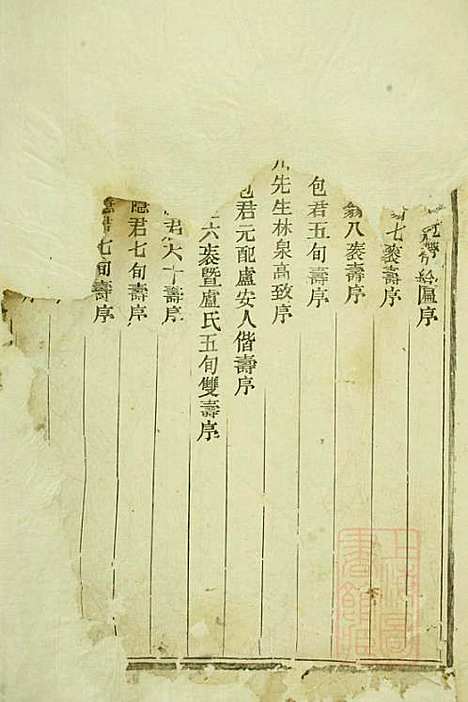 匾序
七袠壽序
翁八袠壽序
包君五旬壽序
先生林泉高致序
包君元配盧安人偕壽序
六袠暨盧氏五旬雙壽序
君六十壽序
隱君七旬壽序
七旬壽序